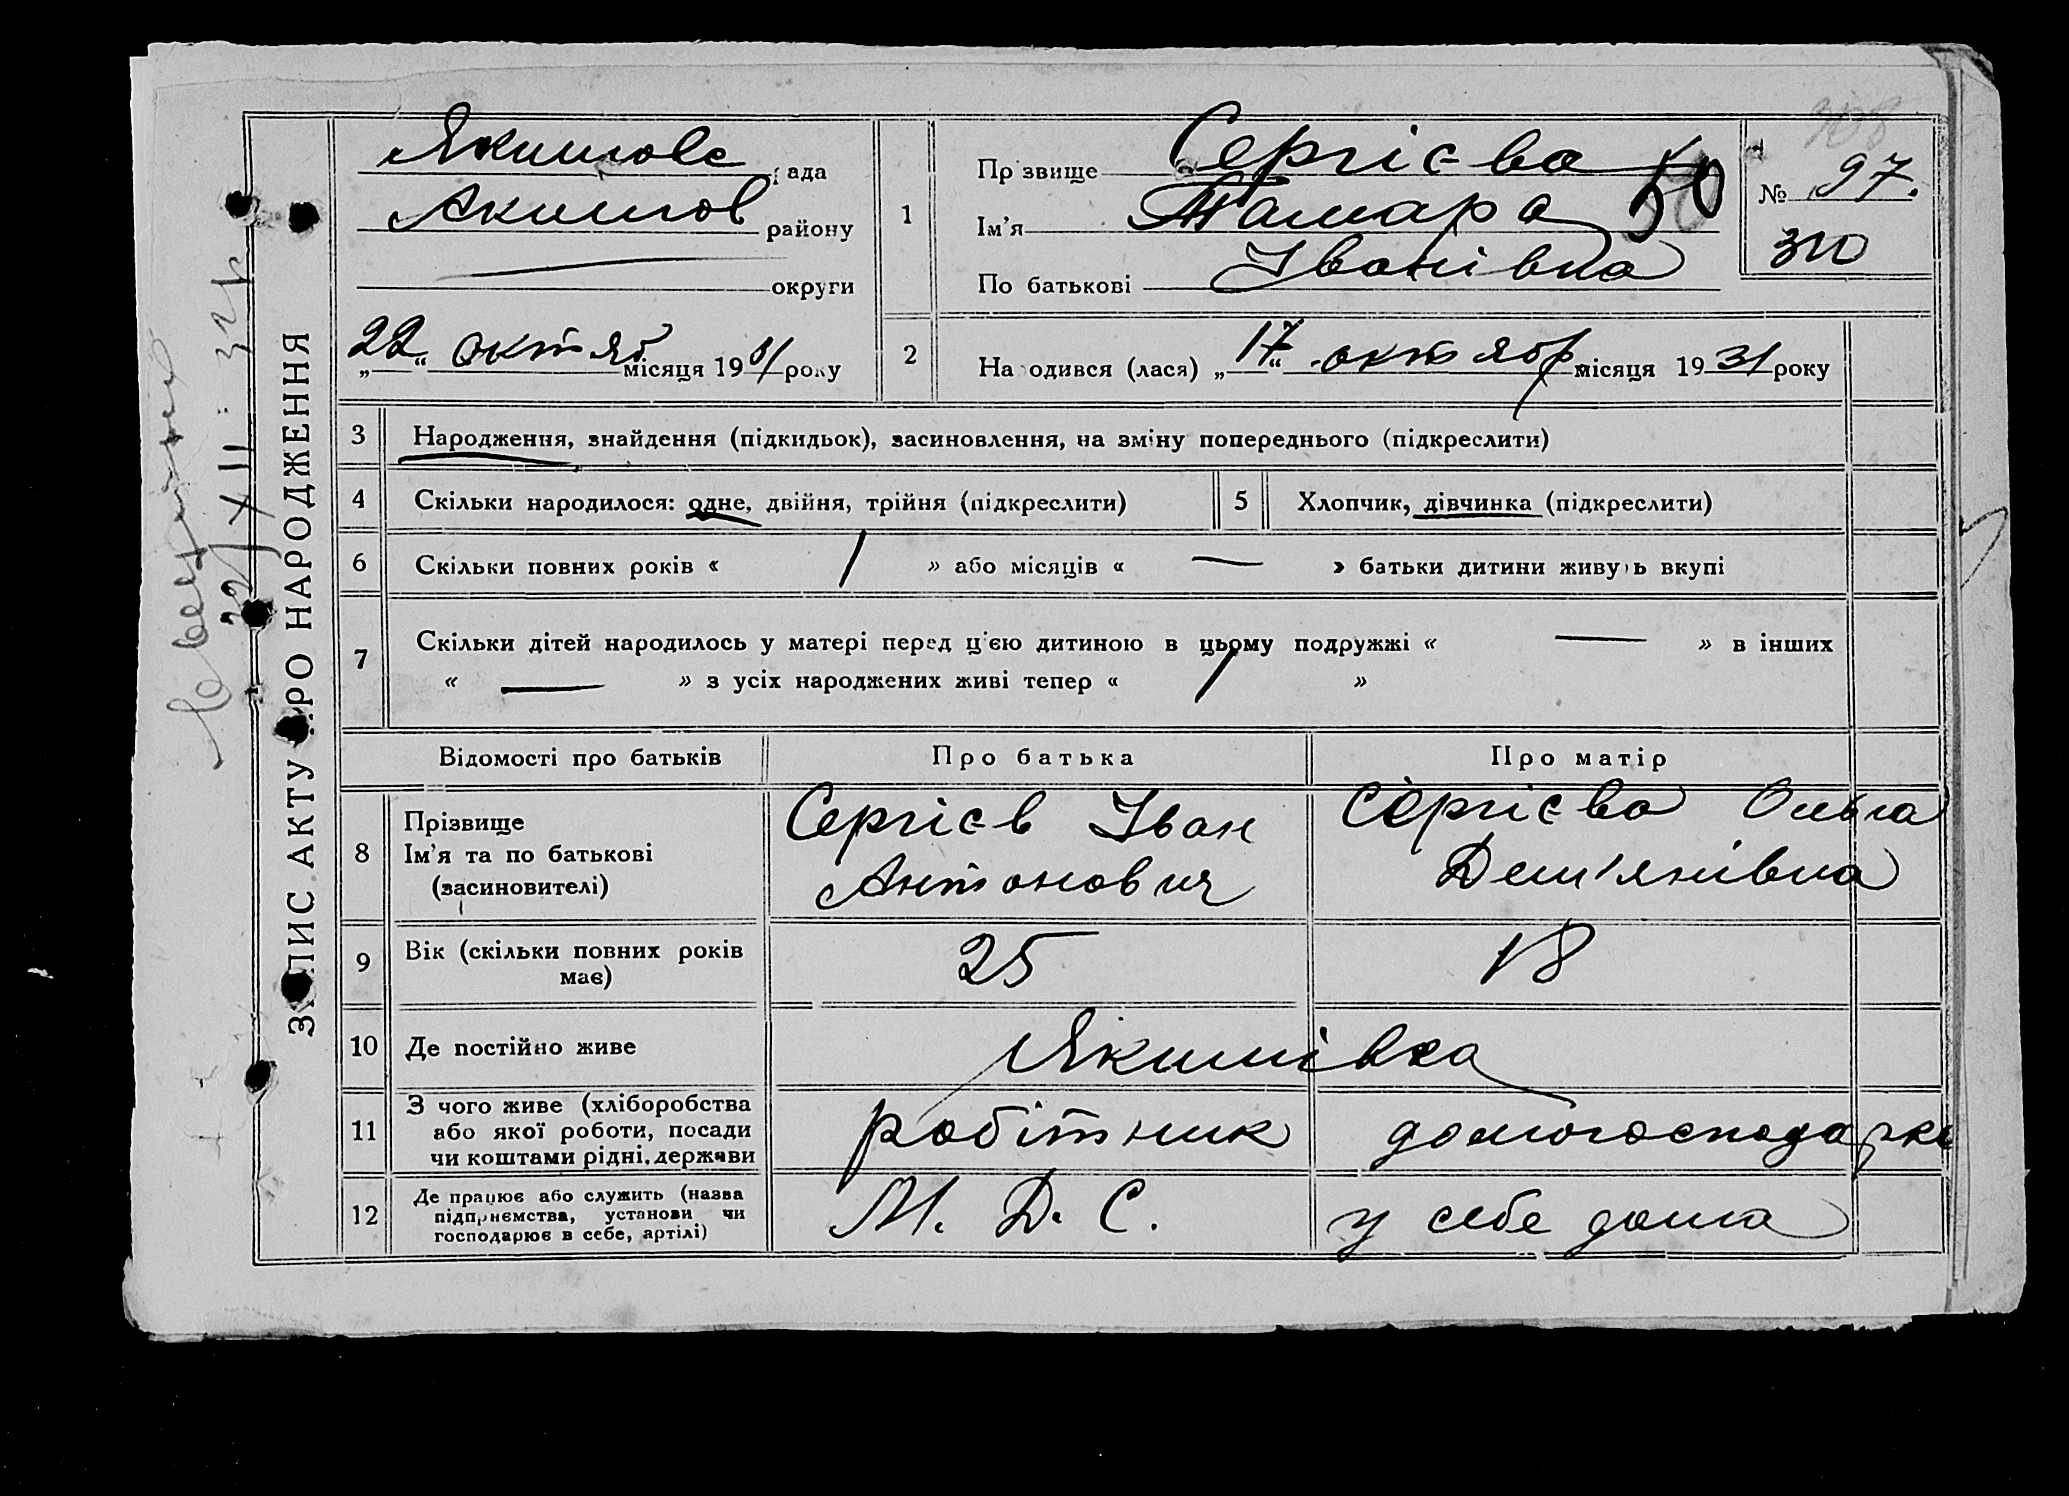 ЗАПИС АКТУ ПРО НАРОДЖЕННЯ
22/XII 32 г.
Якимовс рада
Акимов району
округи
„22“ октяб місяця 1931 року
1
Прізвище Сергієва
Ім'я Тамара
По батькові Іванівна
50
308
№ 97.
310
2 Народився (лася) „17“ октябр місяця 1931 року
3 Народження, знайдення (підкидьок), засиновлення, на зміну попереднього (підкреслити)
4 Скільки народилося: одне, двійня, трійня (підкреслити)
5 Хлопчик, дівчинка (підкреслити)
6 Скільки повних років « 1 » або місяців « — » батьки дитини живуть вкупі
7 Скільки дітей народилось у матері перед ц'єю дитиною в цьому подружжі « — » в інших
« — » з усіх народжених живі тепер « 1 »
Відомості про батьків Про батька Про матір
8 Прізвище
Ім'я та по батькові
(засиновителі)
Сергієв Іван
Антонович
Сергієва Ольга
Дем'янівна
9 Вік (скільки повних років
має)
25 18
10 Де постійно живе Якимівка
11 З чого живе (хліборобства
або якої роботи, посади
чи коштами рідні, держави
робітник домогосподарка
12 Де працює або служить (назва
підприємства, установи чи
господарює в себе, артілі)
М. Д. С. у себе дома